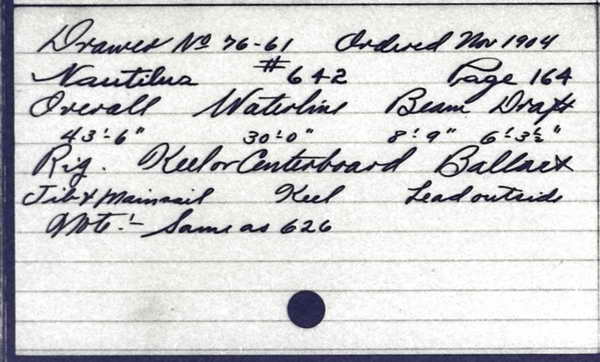 Drawer No 76-61 Ordered Nov 1904
Nautilus #642 Page 164
Overall Waterline Beam Draft
43'-6" 30'-0" 8'-9" 6'-3½"
Rig. Keel or Centerboard Ballast
Jib & Mainsail Keel Lead outside
Note:- Same as 626